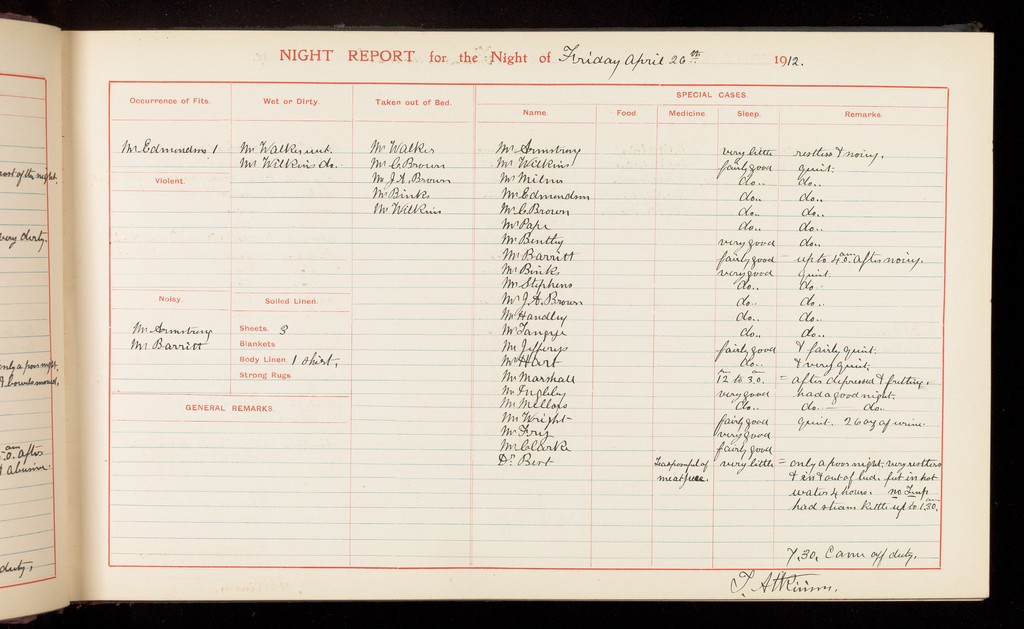 NIGHT REPORT for the Night of Friday April 26th 1912.
Occurrence of Fits.
Wet or Dirty.
Taken out of Bed.
SPECIAL CASES.
Name.
Food.
Medicine.
Sleep.
Remarks.
Mr Edmondson 1
Mr Walker wet.
Mr Wilkins do.
Mr Walker
Mr C. Brown
Mr J. A. Brown
Mr Binks
Mr Wilkins
Violent.
Noisy.
Mr Armstrong
Mr Barritt
Soiled Linen.
Sheets. 3
Blankets
Body Linen. 1 shirt,
Strong Rugs
GENERAL REMARKS.
Mr Armstrong very little restless & noisy.
Mr Wilkins fairly good quiet.
Mr Milnes do.. do..
Mr Edmondson do.. do..
Mr C. Brown do.. do..
Mr Pape do.. do..
Mr Bentley very good do..
Mr Barritt fairly good = up to 4.0 am. after noisy.
Mr Binks very good quiet.
Mr Stephens do.. do..
Mr J. A. Brown do.. do..
Mr Handley do.. do..
Mr Tangye do.. do..
Mr Jefferys fairly good & fairly quiet.
Mr Hart do.. & very quiet.
Mr Marshall 12 to 3.0. am = after depressed & fretting.
Mr very good had a good night.
Mr Mellors do.. do. — do..
Mr Wright fairly good quiet. 26 oz of urine.
Mr very good
Mr Clarke fairly good
Dr. Bert Teaspoonful of very little = only a poor night, very restless
meat juice. & in & out of bed. feet in hot
water 4 hours. no Temp
had steam kettle up to 1.30. am
7.30. Came off duty.
T. Atkinson.
most of the night.
very dirty.
only a poor night.
& bowels moved,
.0. am after
& abusive.
duty,